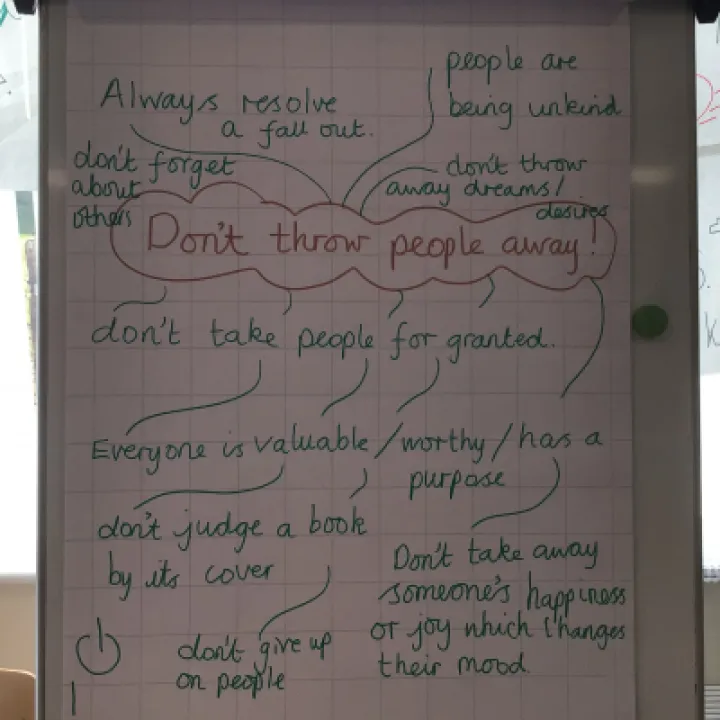 people are
being unkind
Always resolve
a fall out.
don't forget
about
others
don't throw
away dreams/
desires
Don't throw people away!
don't take people for granted.
Everyone is valuable/worthy/has a
purpose
don't judge a book
by its cover
Don't take away
someone's happiness
or joy which changes
their mood
don't give up
on people